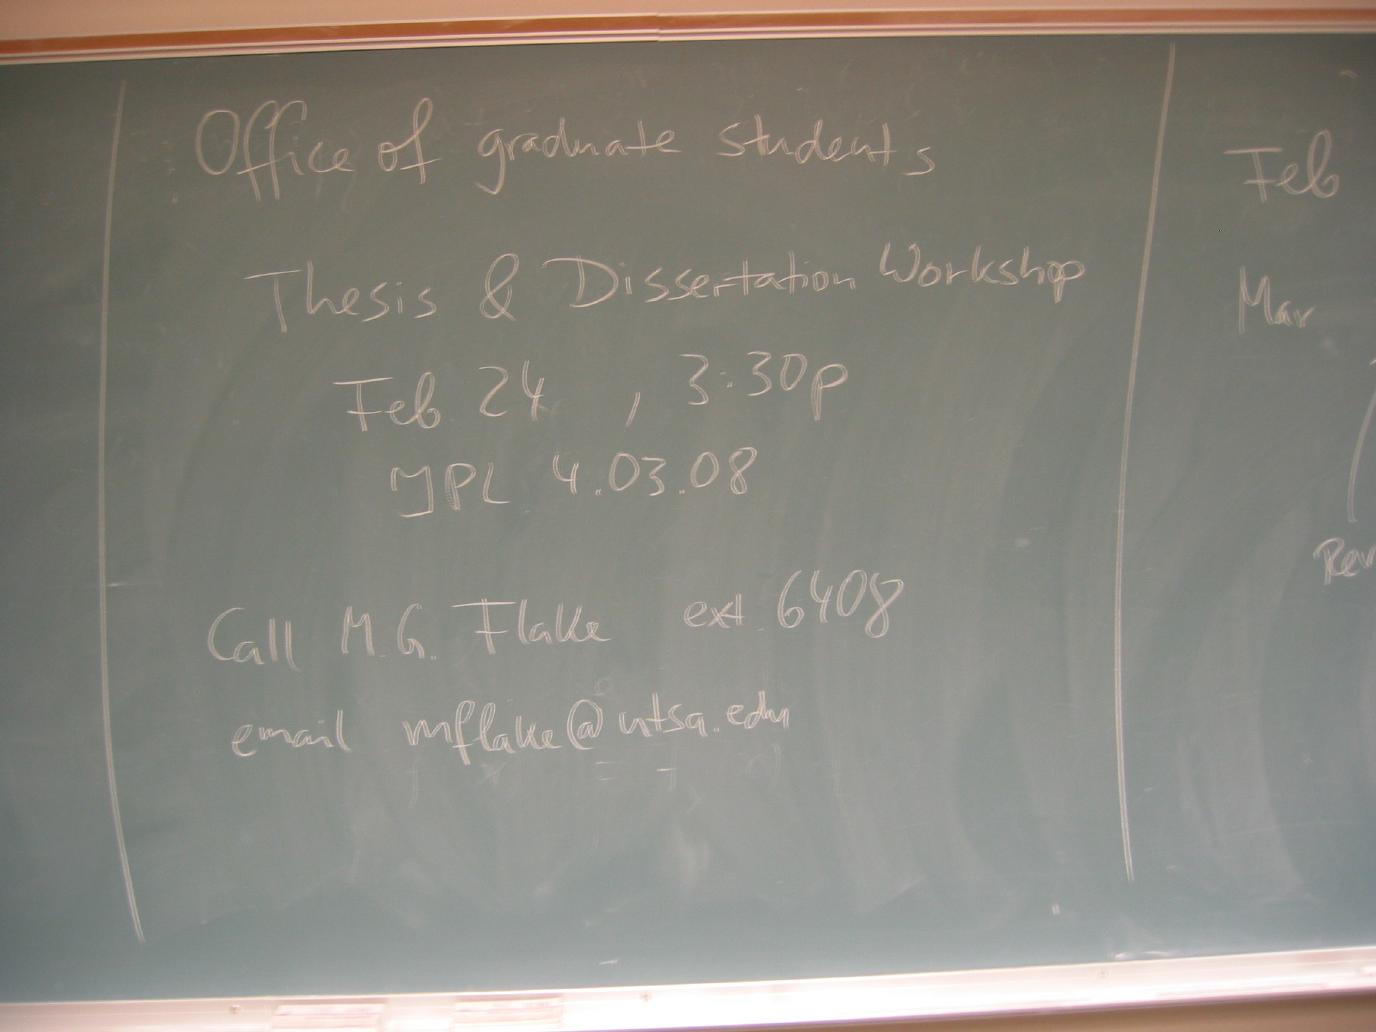 Office of graduate students
Thesis & Dissertation Workshop
Feb 24 , 3:30p
JPL 4.03.08
Call M.G. Flake ext. 6408
email mflake@utsa.edu
Feb
Mar
Rev